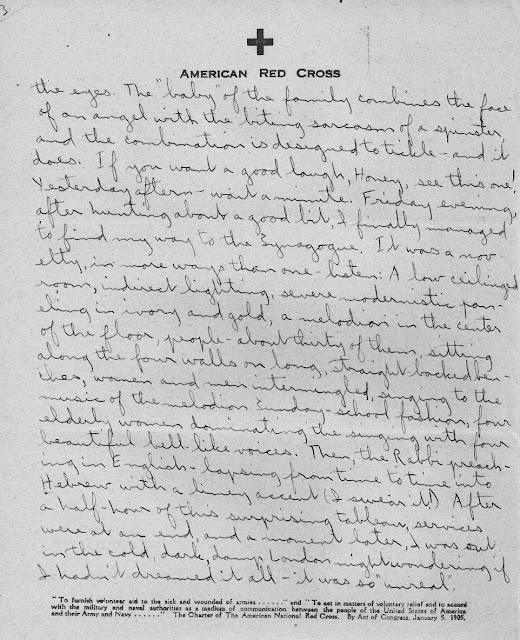 3
AMERICAN RED CROSS
the eyes. The "baby" of the family combines the face
of an angel with the biting sarcasm of a spinster
and the combination is designed to tickle - and it
does. If you want a good laugh, Honey, see this one!
Yesterday aftern - wait a minute. Friday evening,
after hunting about a good bit, I finally managed
to find my way to the Synagogue. It was a nov
elty, in more ways than one - listen: A low ceilinged
room, indirect lighting, severe modernistic pan-
eling in ivory and gold, a melodion in the center
of the floor, people - about thirty of them, sitting
along the four walls on long, straight-backed ben-
ches, women and men intermingled, singing to the
music of the melodion Sunday-school fashion, four
elderly women dominating the singing with four
beautiful bell like voices. Then, the Rabbi preach-
ing in English - lapsing from time to time into
Hebrew with a limey accent (I swear it!) After
a half-hour of this surprising tableau, services
were at an end, and a moment later, I was out
in the cold, dark, damp London night wondering if
I hadn't dreamed it all - it was so "unreal".
"To furnish volunteer aid to the sick and wounded of armies . . . . . ." and "To act in matters of voluntary relief and in accord
with the military and naval authorities as a medium of communication between the people of the United States of America
and their Army and Navy . . . . . ." The Charter of The American National Red Cross. By Act of Congress, January 5, 1905.